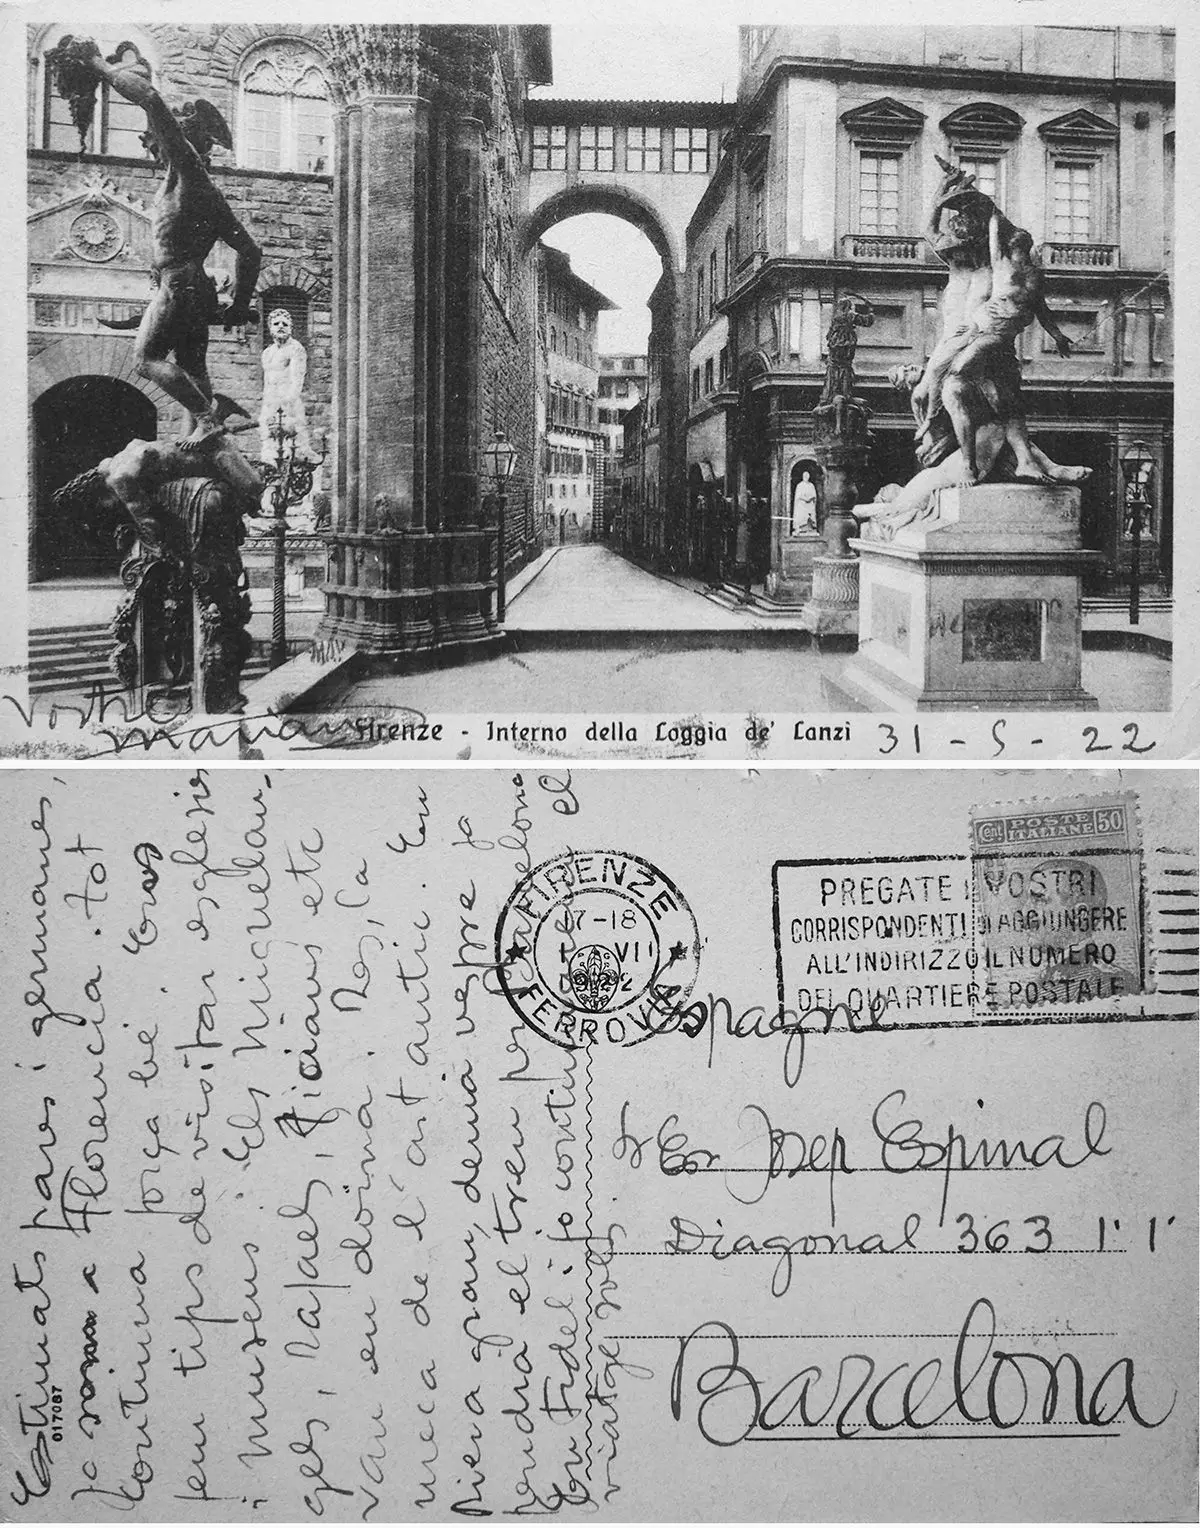 Vostre
Marian
Firenze - Interno della Loggia de' Lanzi
31-5-22
Estimats pares i germans,
Ja som a Florencia. tot
continua força bé. Ens
fem tips de visitar esglesies
i museus. Els Miquelan-
gels, Rafaels, Ticians etc
van en doina.
meca de l'art autic. En
Riera grau, demà vespre ja
pendrà el tren per Barcelona
En Fidel i jo continuarem el
viatge sols.
017087
FIRENZE
17-18
VII
FERROVIA
PREGATE I VOSTRI
CORRISPONDENTI DI AGGIUNGERE
ALL'INDIRIZZO IL NUMERO
DEL QUARTIERE POSTALE
Cent POSTE ITALIANE 50
Espagne
Sr En Josep Espinal
Diagonal 363 1' 1'
Barcelona